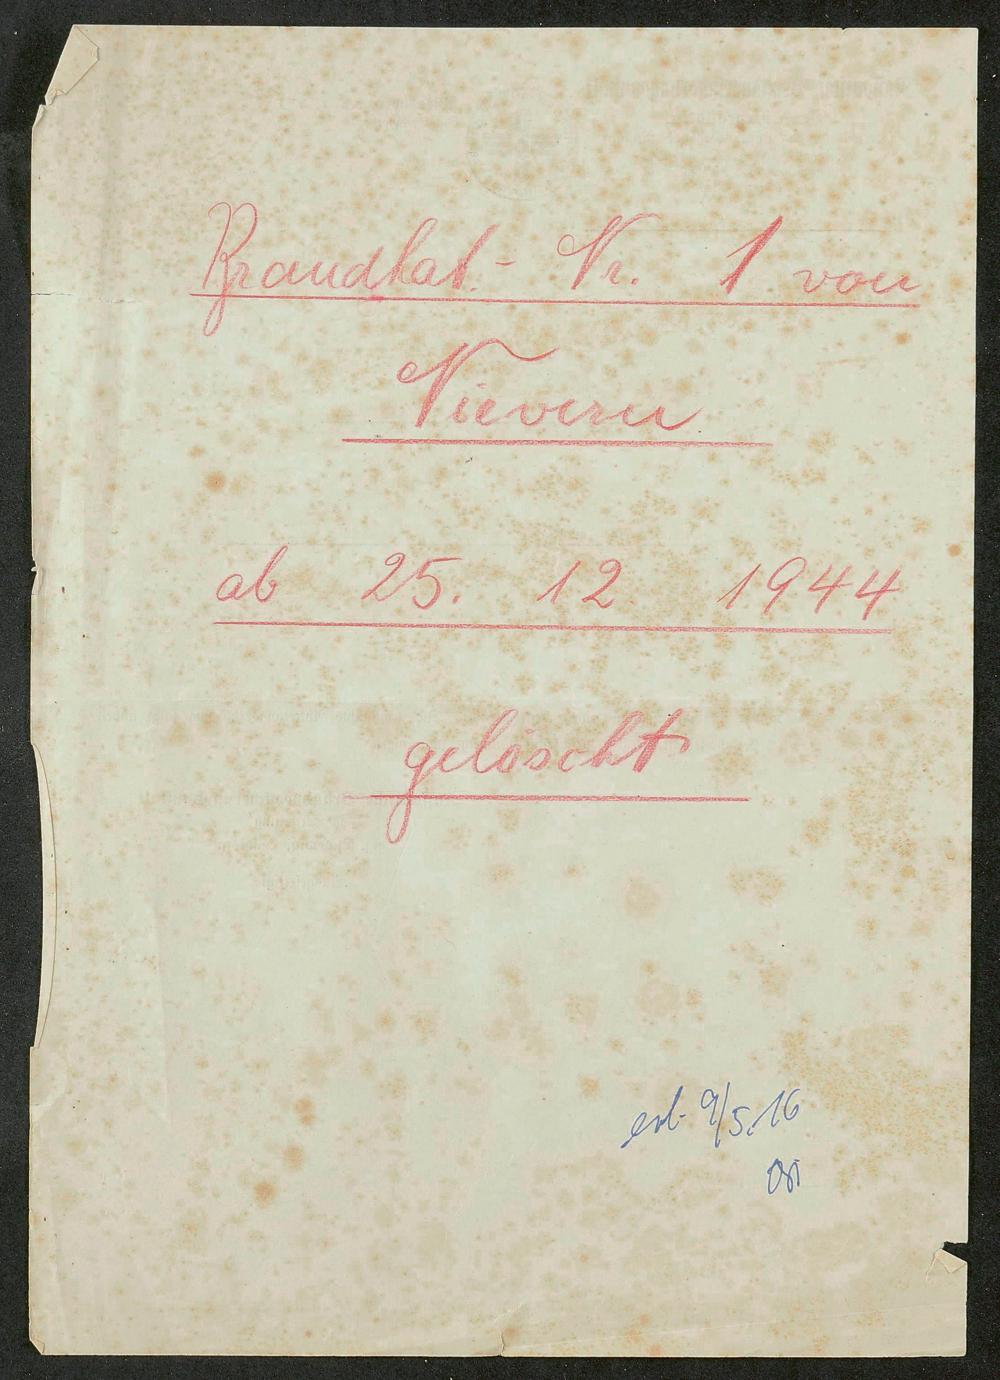 Brandkat.- Nr. 1 von
Nievern
ab 25. 12 1944
gelöscht
erl. 9/5.16